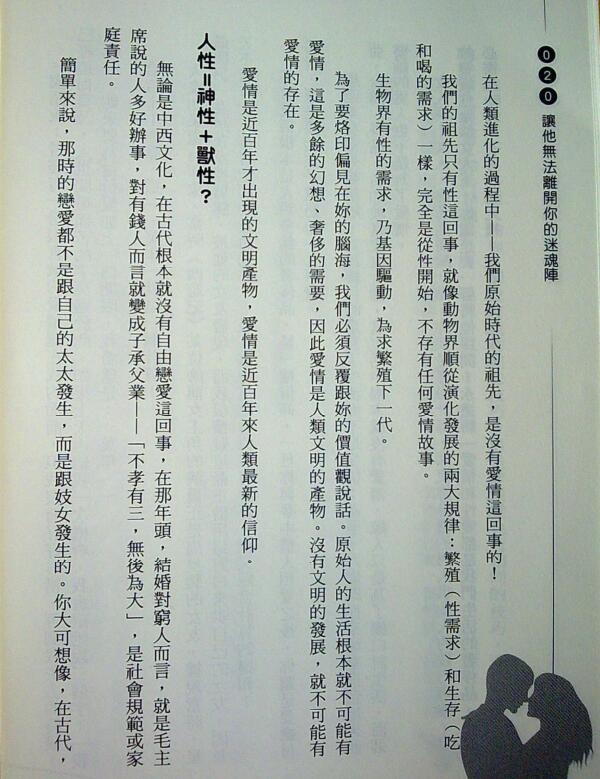 020 讓他無法離開你的迷魂陣
在人類進化的過程中——我們原始時代的祖先,是沒有愛情這回事的!
我們的祖先只有性這回事,就像動物界順從演化發展的兩大規律:繁殖(性需求)和生存(吃
和喝的需求)一樣,完全是從性開始,不存有任何愛情故事。
生物界有性的需求,乃基因驅動,為求繁殖下一代。
為了要烙印偏見在妳的腦海,我們必須反覆跟妳的價值觀說話。原始人的生活根本就不可能有
愛情,這是多餘的幻想、奢侈的需要,因此愛情是人類文明的產物。沒有文明的發展,就不可能有
愛情的存在。
愛情是近百年才出現的文明產物,愛情是近百年來人類最新的信仰。
人性=神性+獸性?
無論是中西文化,在古代根本就沒有自由戀愛這回事,在那年頭,結婚對窮人而言,就是毛主
席說的人多好辦事,對有錢人而言就變成子承父業——「不孝有三,無後為大」,是社會規範或家
庭責任。
簡單來說,那時的戀愛都不是跟自己的太太發生,而是跟妓女發生的。你大可想像,在古代,